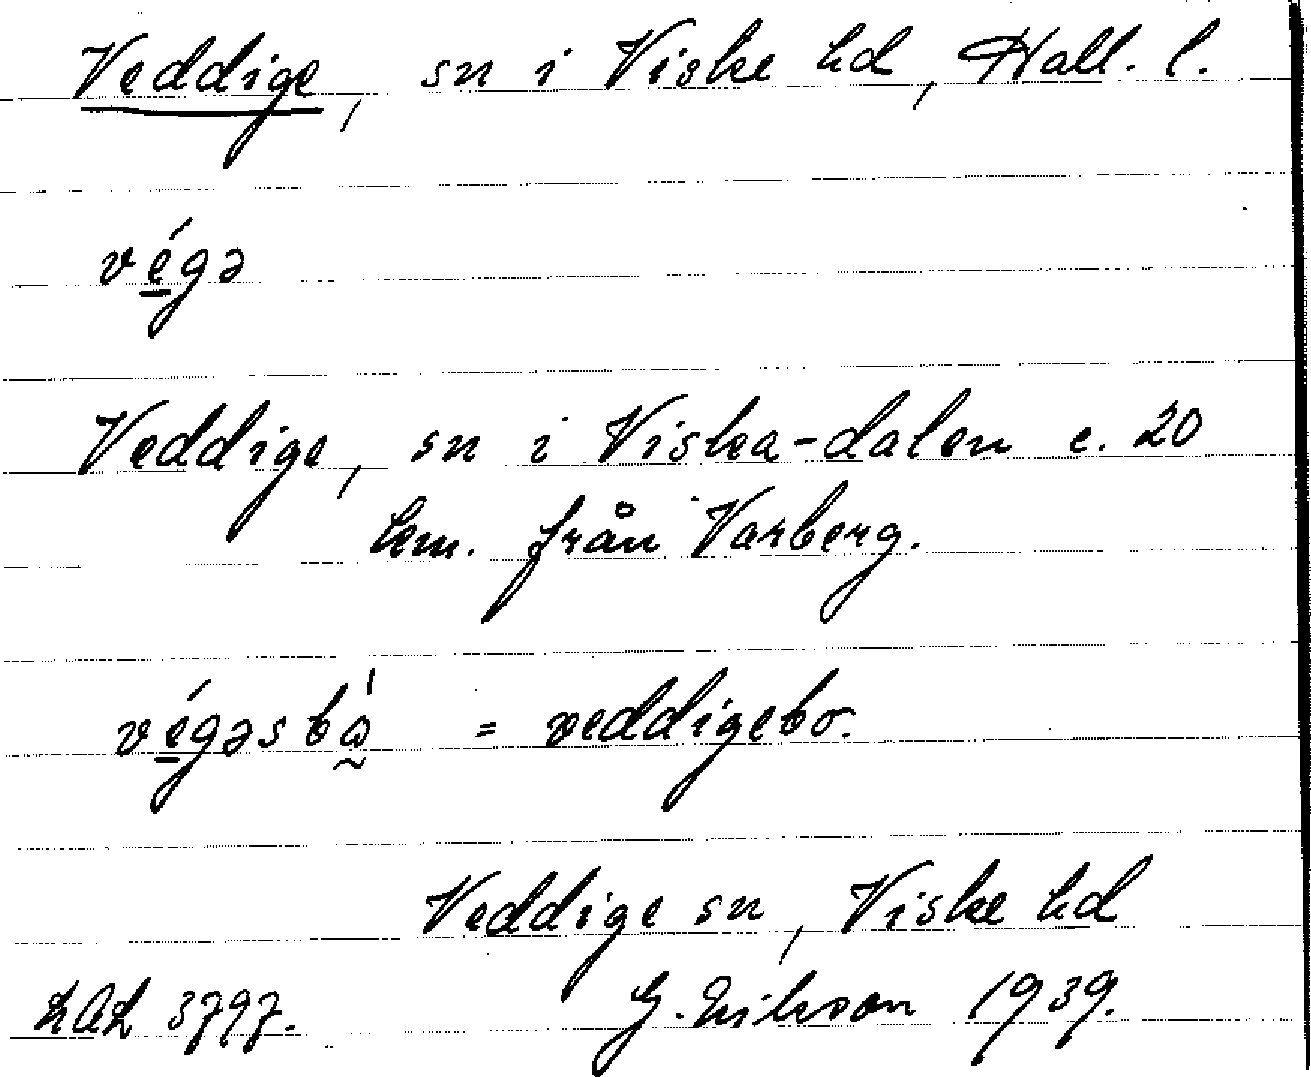 Veddige, sn i Viske hd, Hall. l.
végə
Veddige, sn i Viska-dalen c. 20
km. från Varberg.
végəsbɷ̰̍ = veddigebo.
Veddige sn, Viske hd
LAL 3797. G. Nilsson 1939.